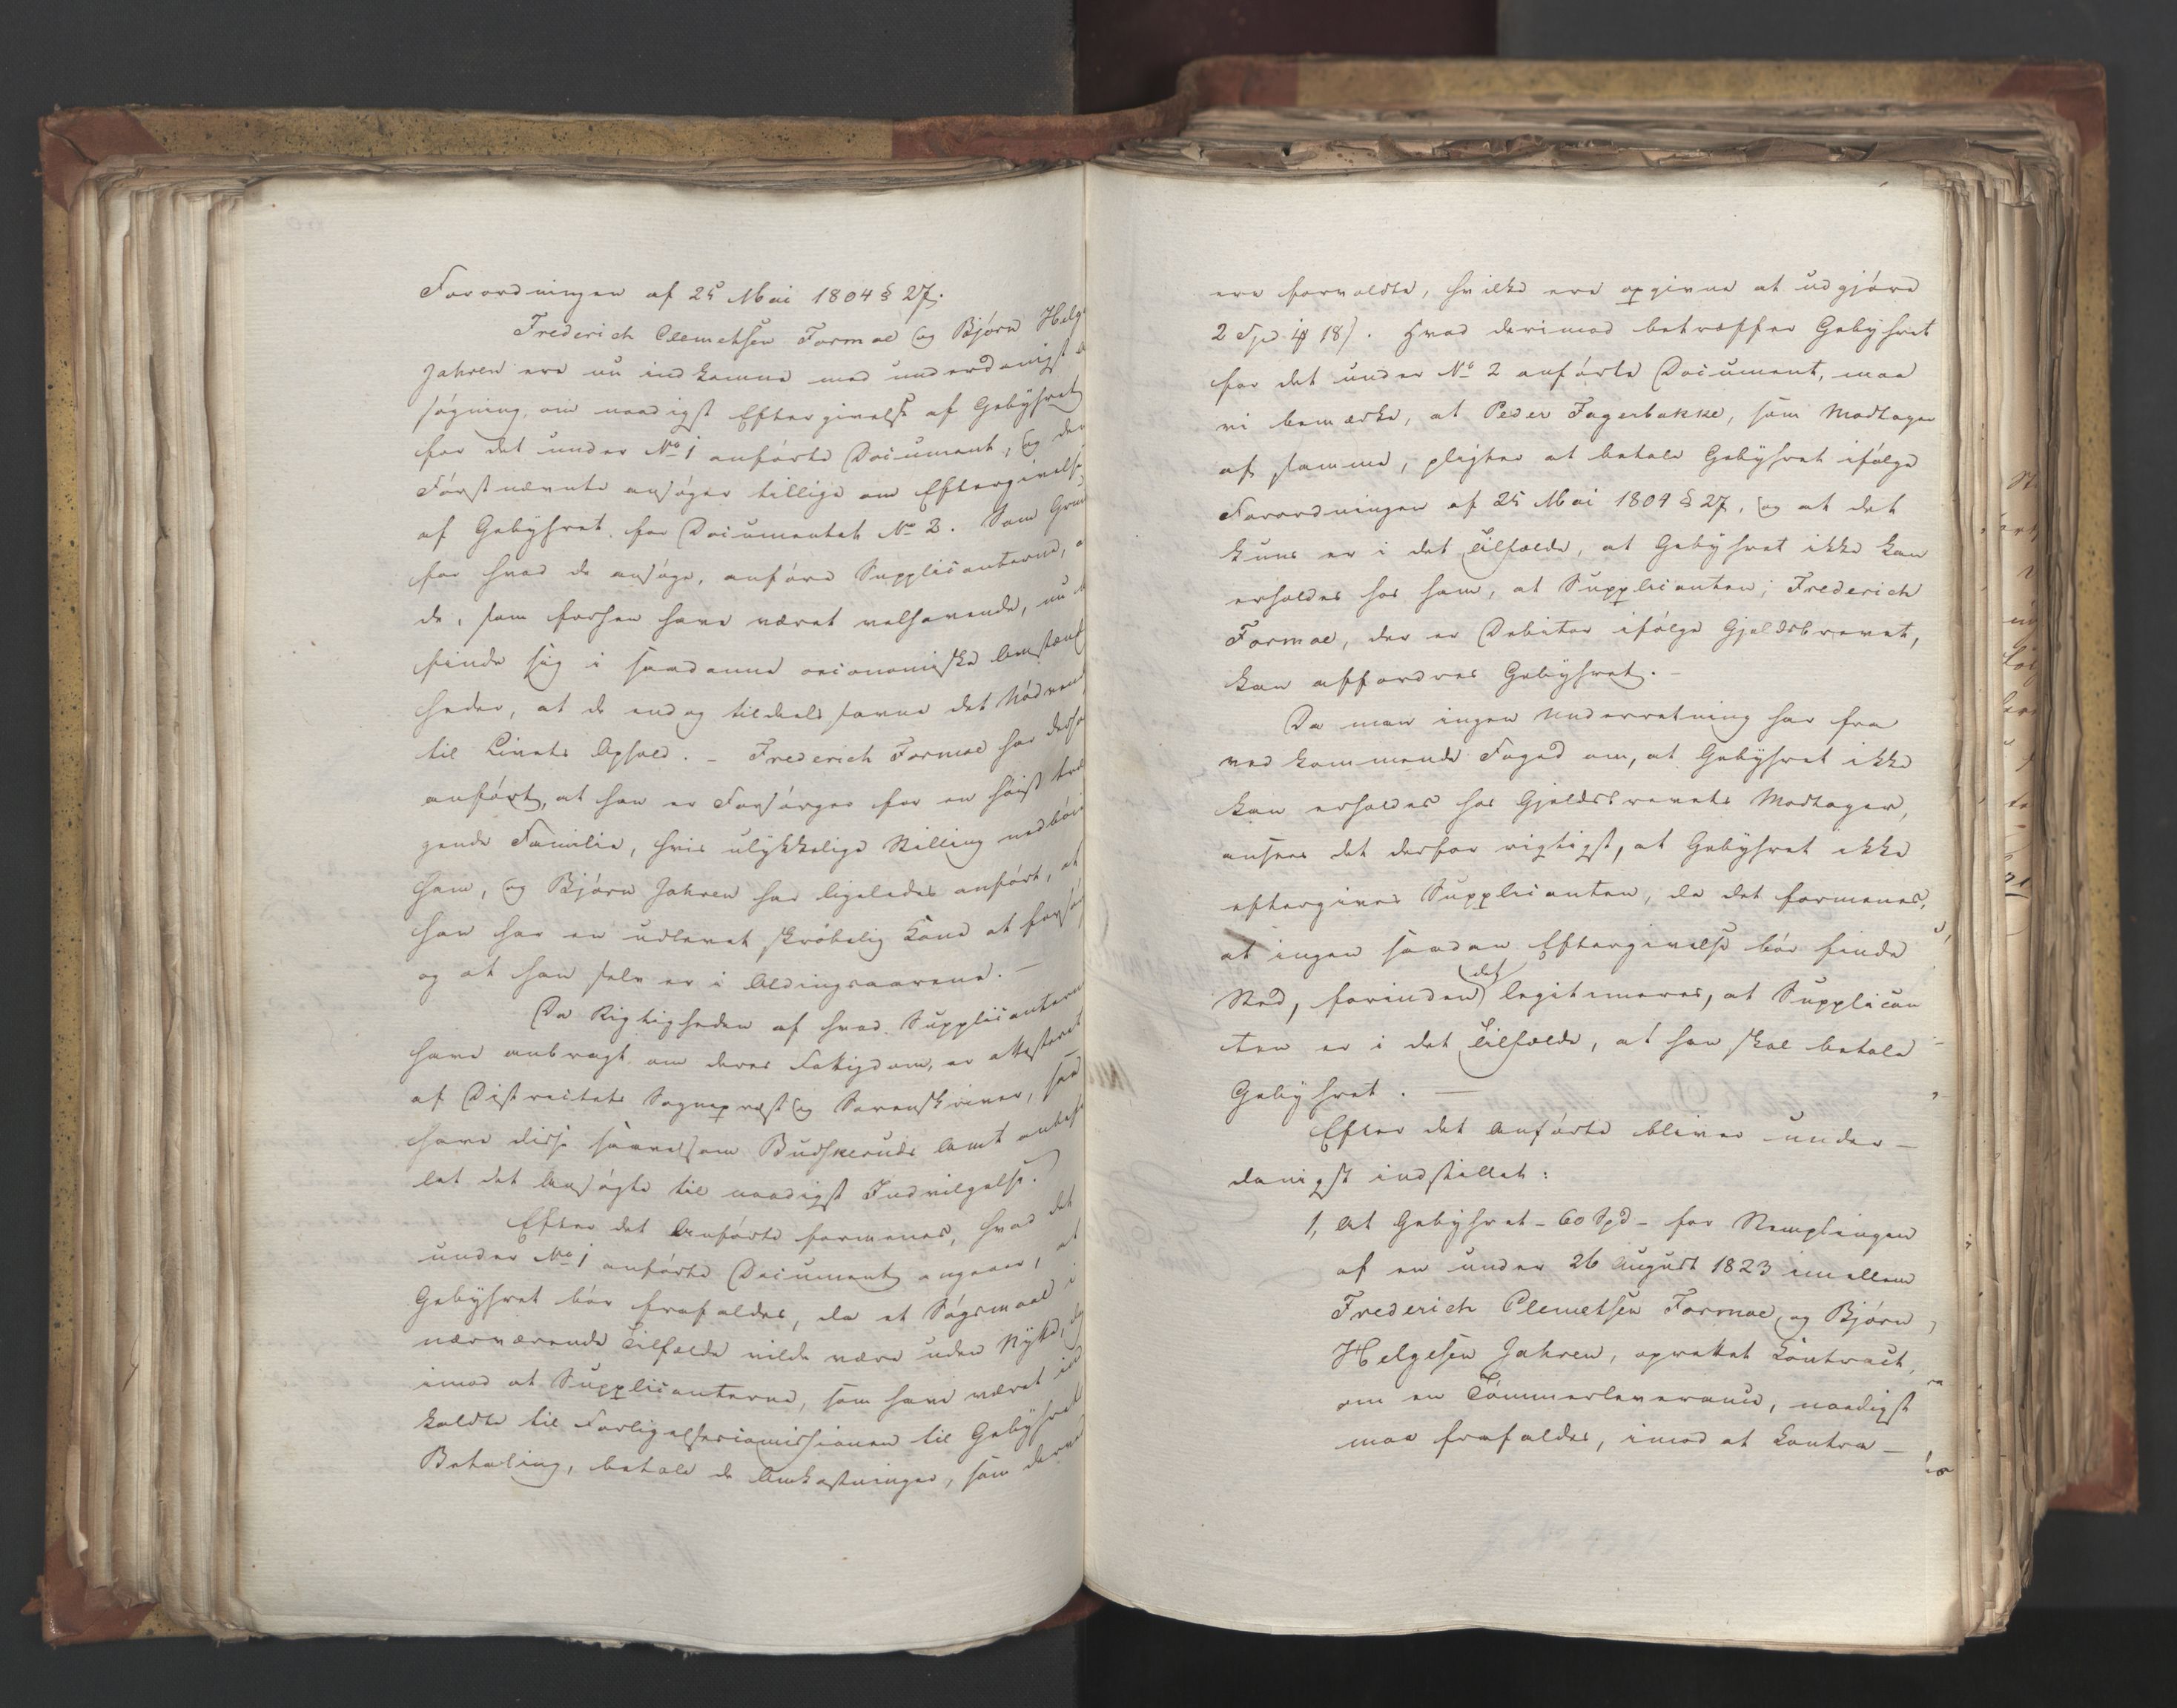 Forordningen af 25 Mai 1804 § 27.
Frederich Clemetsen Formoe og Bjørn Helge
Jahren ere nu indkomne med underdanigst
søgning om naadigst Eftergivelse af Gebyhret
for det under No 1 anførte Document, og den
Førstnævnte ansøger tillige om Eftergivelse
af Gebyhret for Documentet No 2. Som Grund
for hvad de ansøge, anføre Supplicanterne, a
de, som forhen have været velhavende, nu
finde sig i saadanne oeconomiske Omstænd
heder, at de endog tildeels savne det Nødven
til Livets Ophold. – Frederich Formoe har desfo
anført, at han er Forsørger for en høist træn
gende Familie, hvis ulykkelige Stilling nedbøi
ham, og Bjørn Jahren har ligeledes anført, at
han har en udlevet skrøbelig Kone at forsør
og at han selv er i Aldingsaarene. –
Da Rigtigheden af hvad Supplicanterne
have anbragt om deres Fattigdom, er attesteret
af Districtets Sognepræst og Sorenskriver, saa
have disse saavelsom Budskeruds Amt anbefa
let det Ansøgte til naadigst Indvilgelse.
Efter det Anførte formenes, hvad det
under No 1 anførte Document angaaer, at
Gebyhret bør frafaldes, da et Søgsmaal i
nærværende Tilfælde vilde være uden Nytte, og
imod at Supplicanterne, som have været ind
kaldte til Forligelsescommissionen til Gebyhrets
Betaling, betale de Omkostninger, som derved
ere forvoldte, hvilke ere opgivne at udgjøre
2 Spd 18 s. Hvad derimod betræffer Gebyhret
for det under No 2 anførte Document, maa
vi bemærke, at Peder Fagerbakke, som Modtager
af samme, pligter at betale Gebyhret ifølge
Forordningen af 25 Mai 1804 § 27, og at det
kuns er i det Tilfælde, at Gebyhret ikke kan
erholdes hos ham, at Supplicanten, Frederich
Formoe, der er Debitor ifølge Gjeldsbrevet,
kan affordres Gebyhret. –
Da man ingen Underretning har fra
vedkommende Foged om, at Gebyhret ikke
kan erholdes hos Gjeldsbrevets Modtager,
ansees det derfor rigtigst, at Gebyhret ikke
eftergives Supplicanten, da det formenes,
at ingen saadan Eftergivelse bør finde
Sted, forinden det legitimeres, at Supplican
ten er i det Tilfælde, at han skal betale
Gebyhret. –
Efter det Anførte bliver under–
danigst indstillet:
1, At Gebyhret – 60 Spd – for Stemplingen
af en under 26 August 1823 imellem
Frederich Clemetsen Formoe og Bjørn
Helgesen Jahren, oprettet Contract,
om en Tømmerleverance, naadigst
maa frafaldes, imod at Contra–